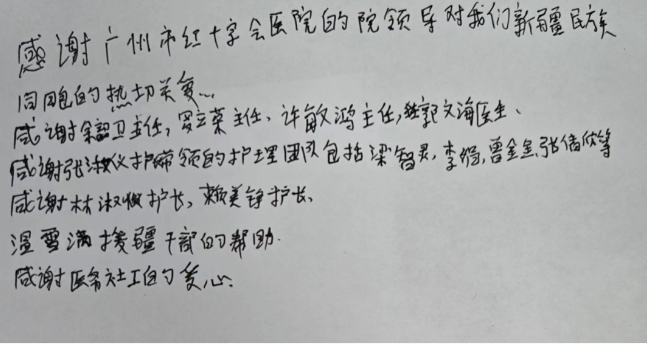 感谢广州市红十字会医院的院领导对我们新疆民族
同胞的热切关爱..
感谢余翠卫主任,罗立荣主任、许敏鸿主任,郭文海医生、
感谢张淑仪护师带领的护理团队包括梁智灵,李娟,曾金兰,张倩欣等
感谢林淑娥护长、赖美铮护长、
温雪满援疆干部的帮助.
感谢医务社工的爱心.